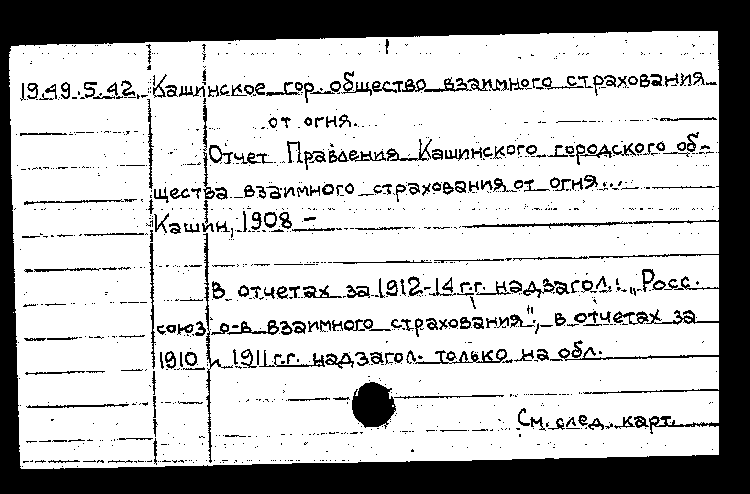 19.49.5.42. Кашинское гор. общество взаимного страхования
от огня.
Отчет Правления Кашинского городского об-
щества взаимного страхования от огня...
Кашин, 1908 –
В отчетах за 1912-14 г.г. надзагол.: „Росс.
союз о-в взаимного страхования“; в отчетах за
1910 и 1911 г.г. надзагол. только на обл.
См. след. карт.